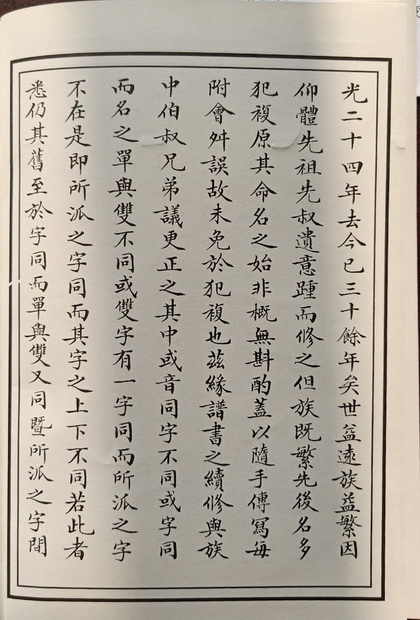 光二十四年去今已三十餘年矣世益遠族益繁因
仰體先祖先叔遺意踵而修之但族既繁先後名多
犯複原其命名之始非概無斟酌蓋以隨手傳寫每
附會舛誤故未免於犯複也茲緣譜書之續修與族
中伯叔兄弟議更正之其中或音同字不同或字同
而名之單與雙不同或雙字有一字同而所派之字
不在是即所派之字同而其字之上下不同若此者
悉仍其舊至於字同而單與雙又同暨所派之字間